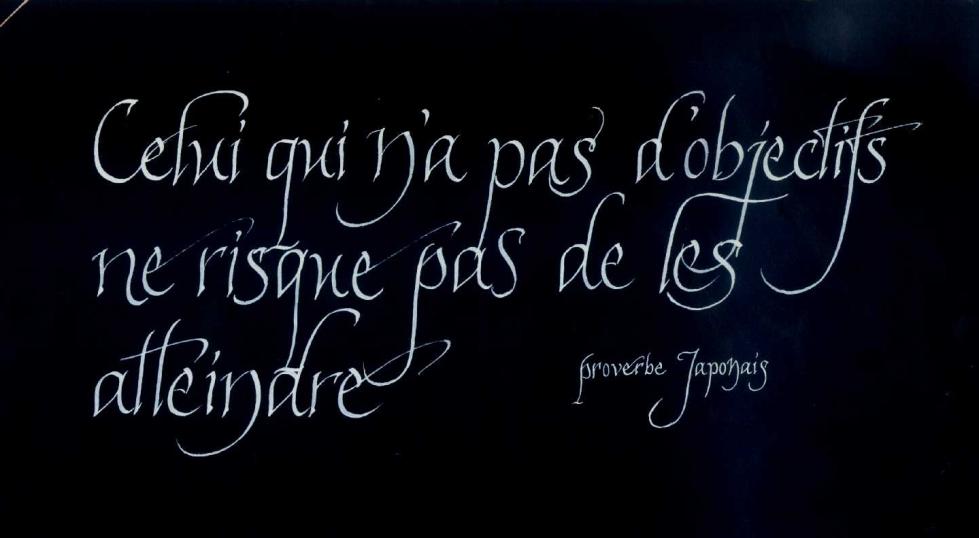 Celui qui n'a pas d'objectifs
ne risque pas de les
atteindre
proverbe Japonais